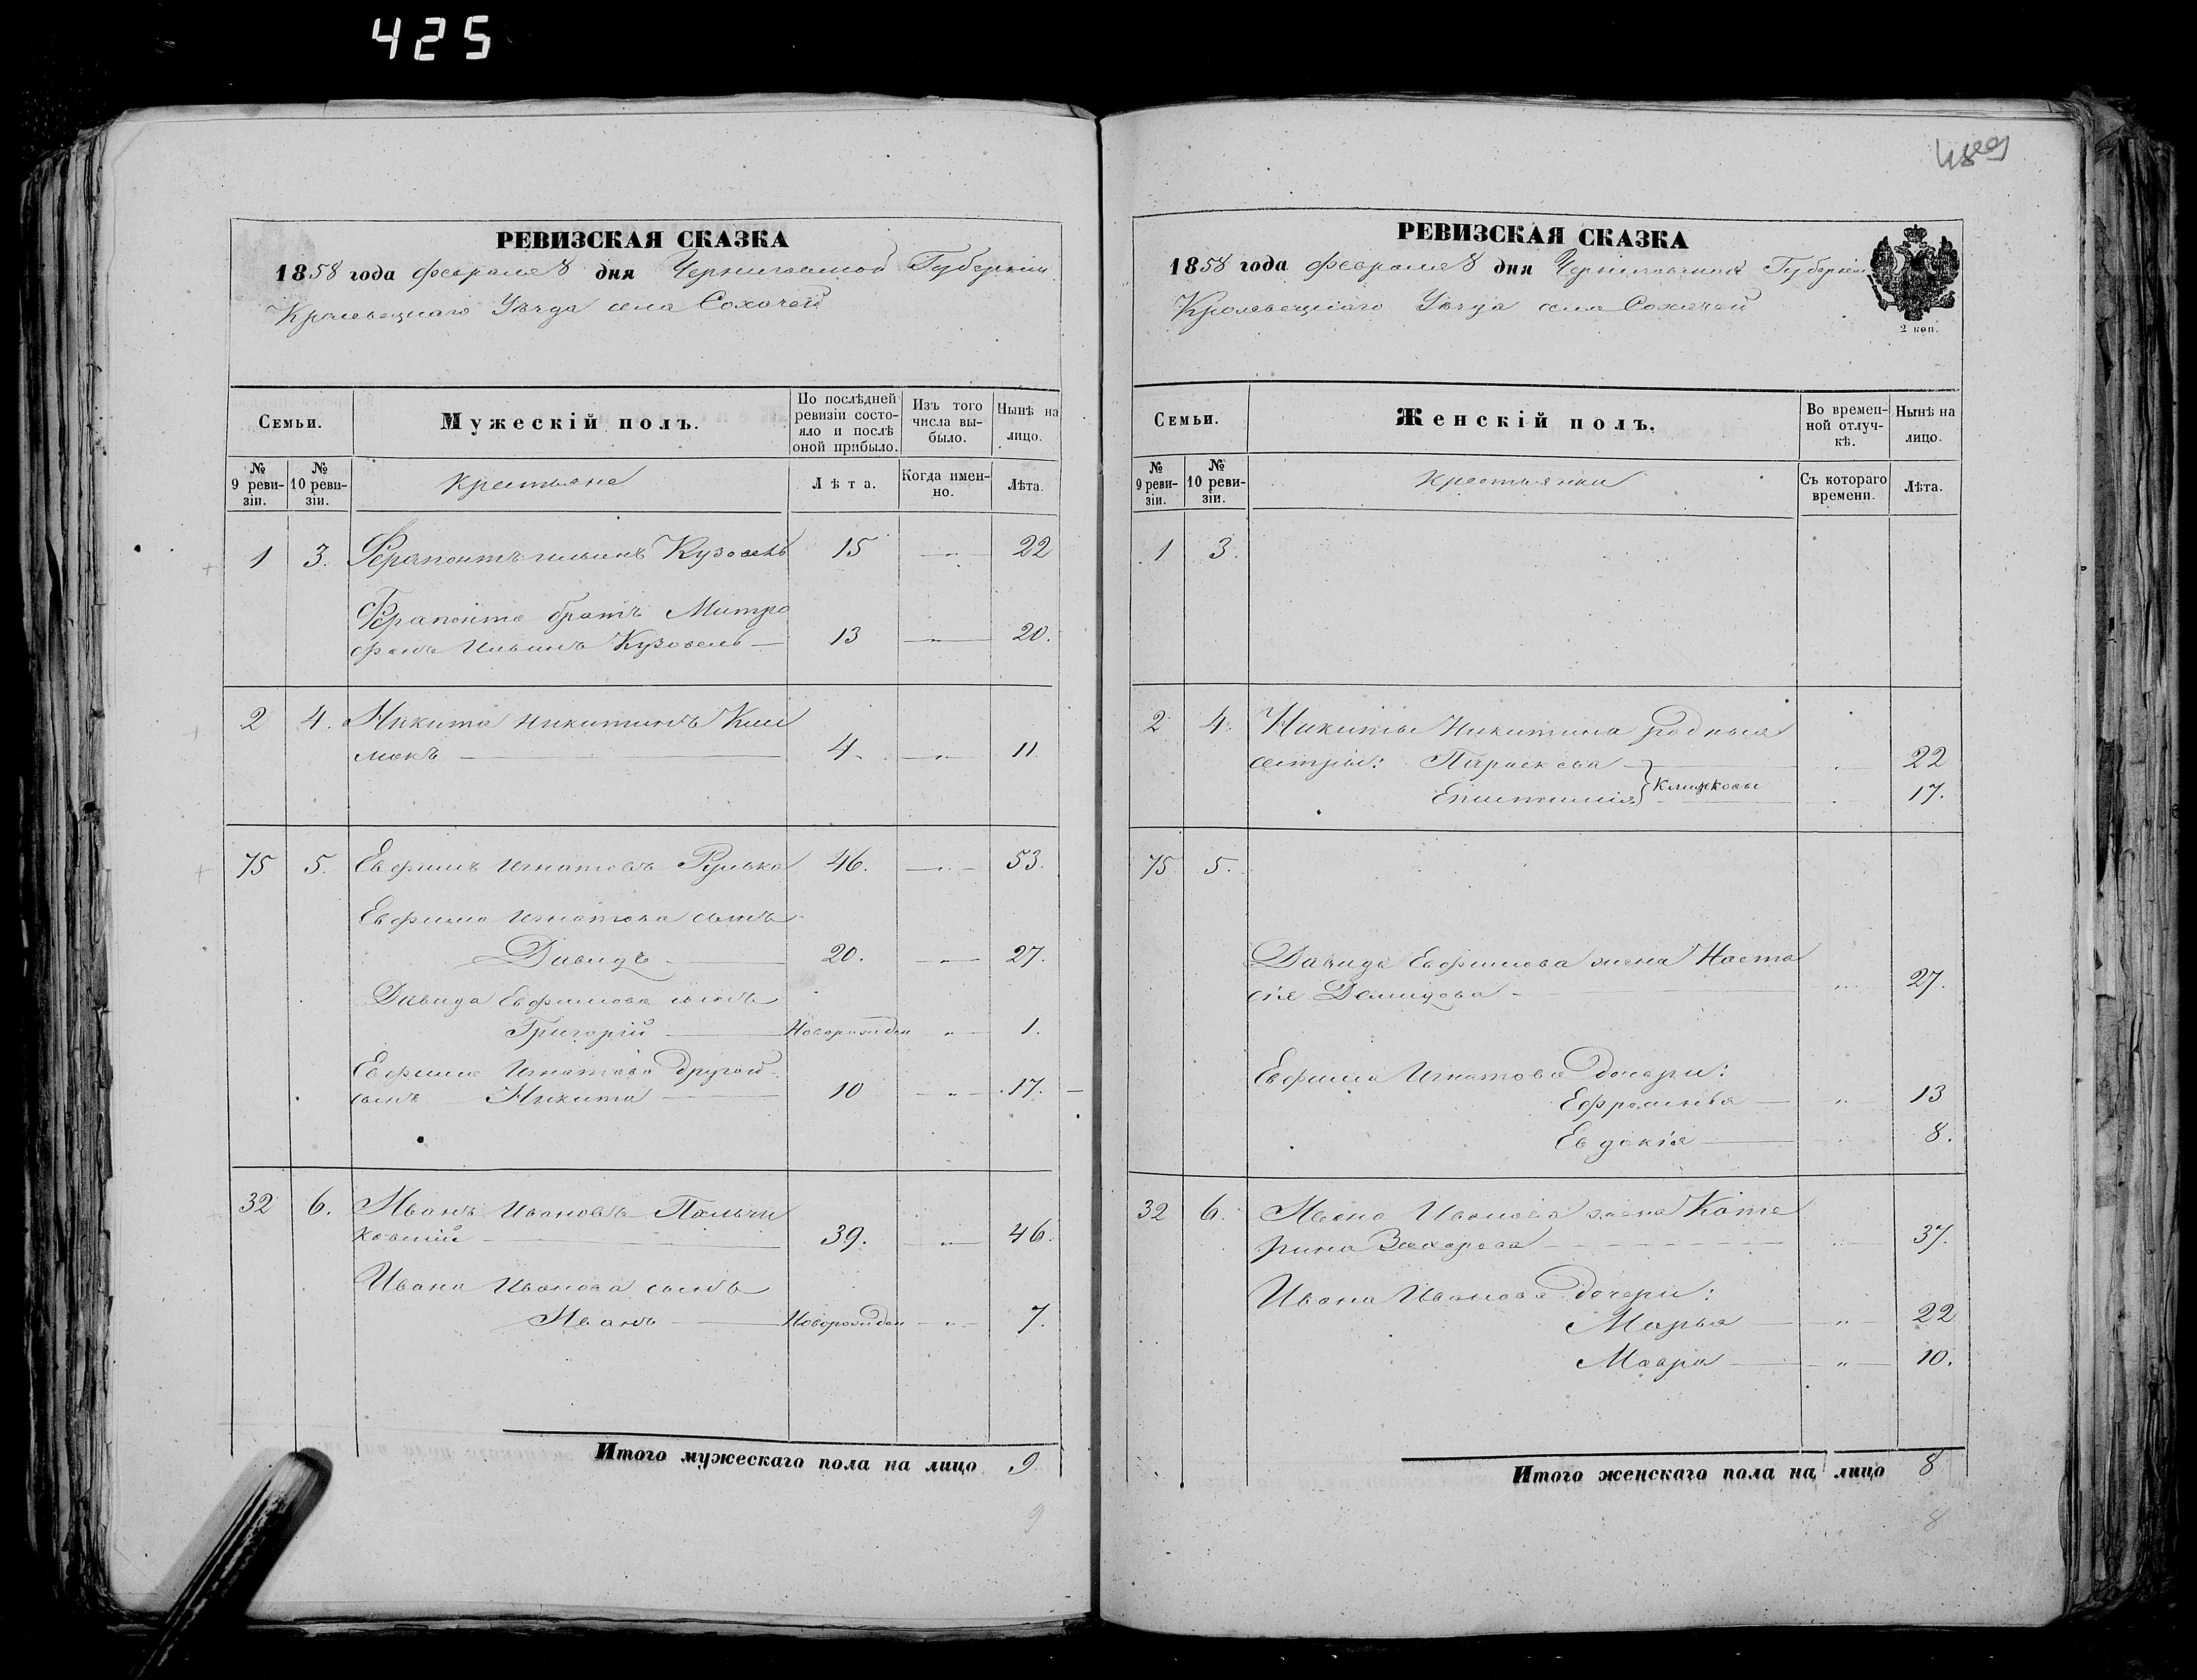 425
489
РЕВИЗСКАЯ СКАЗКА
1858 года февраля 8 дня Черниговской Губерніи
Кролевецкаго Уѣзда села Сохачей
Семьи.
Мужескій полъ.
По послѣдней ревизіи состояло и послѣ оной прибыло.
Изъ того числа выбыло.
Нынѣ на лицо.
№ 9 ревизіи.
№ 10 ревизіи.
Крестьяне
Лѣта.
Когда именно.
Лѣта.
1 3. Ферапонтъ Ильинъ Кузовель 15 — „ — 22
Ферапонта братъ Митро
фанъ Ильинъ Кузовель — 13 — „ — 20.
2 4. Никита Никитинъ Кли
мокъ — 4. — „ — 11.
75 5. Евфимъ Игнатовъ Рулька 46. — „ — 53.
Евфима Игнатова сынъ
Давидъ — 20. — „ — 27.
Давида Евфимова сынъ
Григорій — Новорожден — „ — 1.
Евфима Игнатова другой
сынъ Никита — 10 — „ — 17. —
32 6. Иванъ Ивановъ
39. — „ — 46.
Ивана Иванова сынъ
Иванъ — Новорожден — „ — 7.
Итого мужескаго пола на лицо 9
9
РЕВИЗСКАЯ СКАЗКА
1858 года февраля 8 дня Черниговской Губерніи
Кролевецкаго Уѣзда села Сохачей
2 коп.
Семьи.
Женскій полъ.
Во временной отлучкѣ.
Нынѣ на лицо.
№ 9 ревизіи.
№ 10 ревизіи.
Крестьянки
Съ котораго времени.
Лѣта.
1 3.
2 4. Никиты Никитина родныя
сестры: Параскева — „ — 22
Епистимія } Климковы — „ — 17.
75 5.
Давида Евфимова жена Наста
сія Демидова — „ — 27.
Евфима Игнатова дочери:
Ефросинья — „ — 13
Евдокія — „ — 8.
32 6. Ивана Иванова жена Кате
рина Захарова — „ — 37.
Ивана Иванова дочери:
Марья — „ — 22
Мавра — „ — 10.
Итого женскаго пола на лицо 8
8